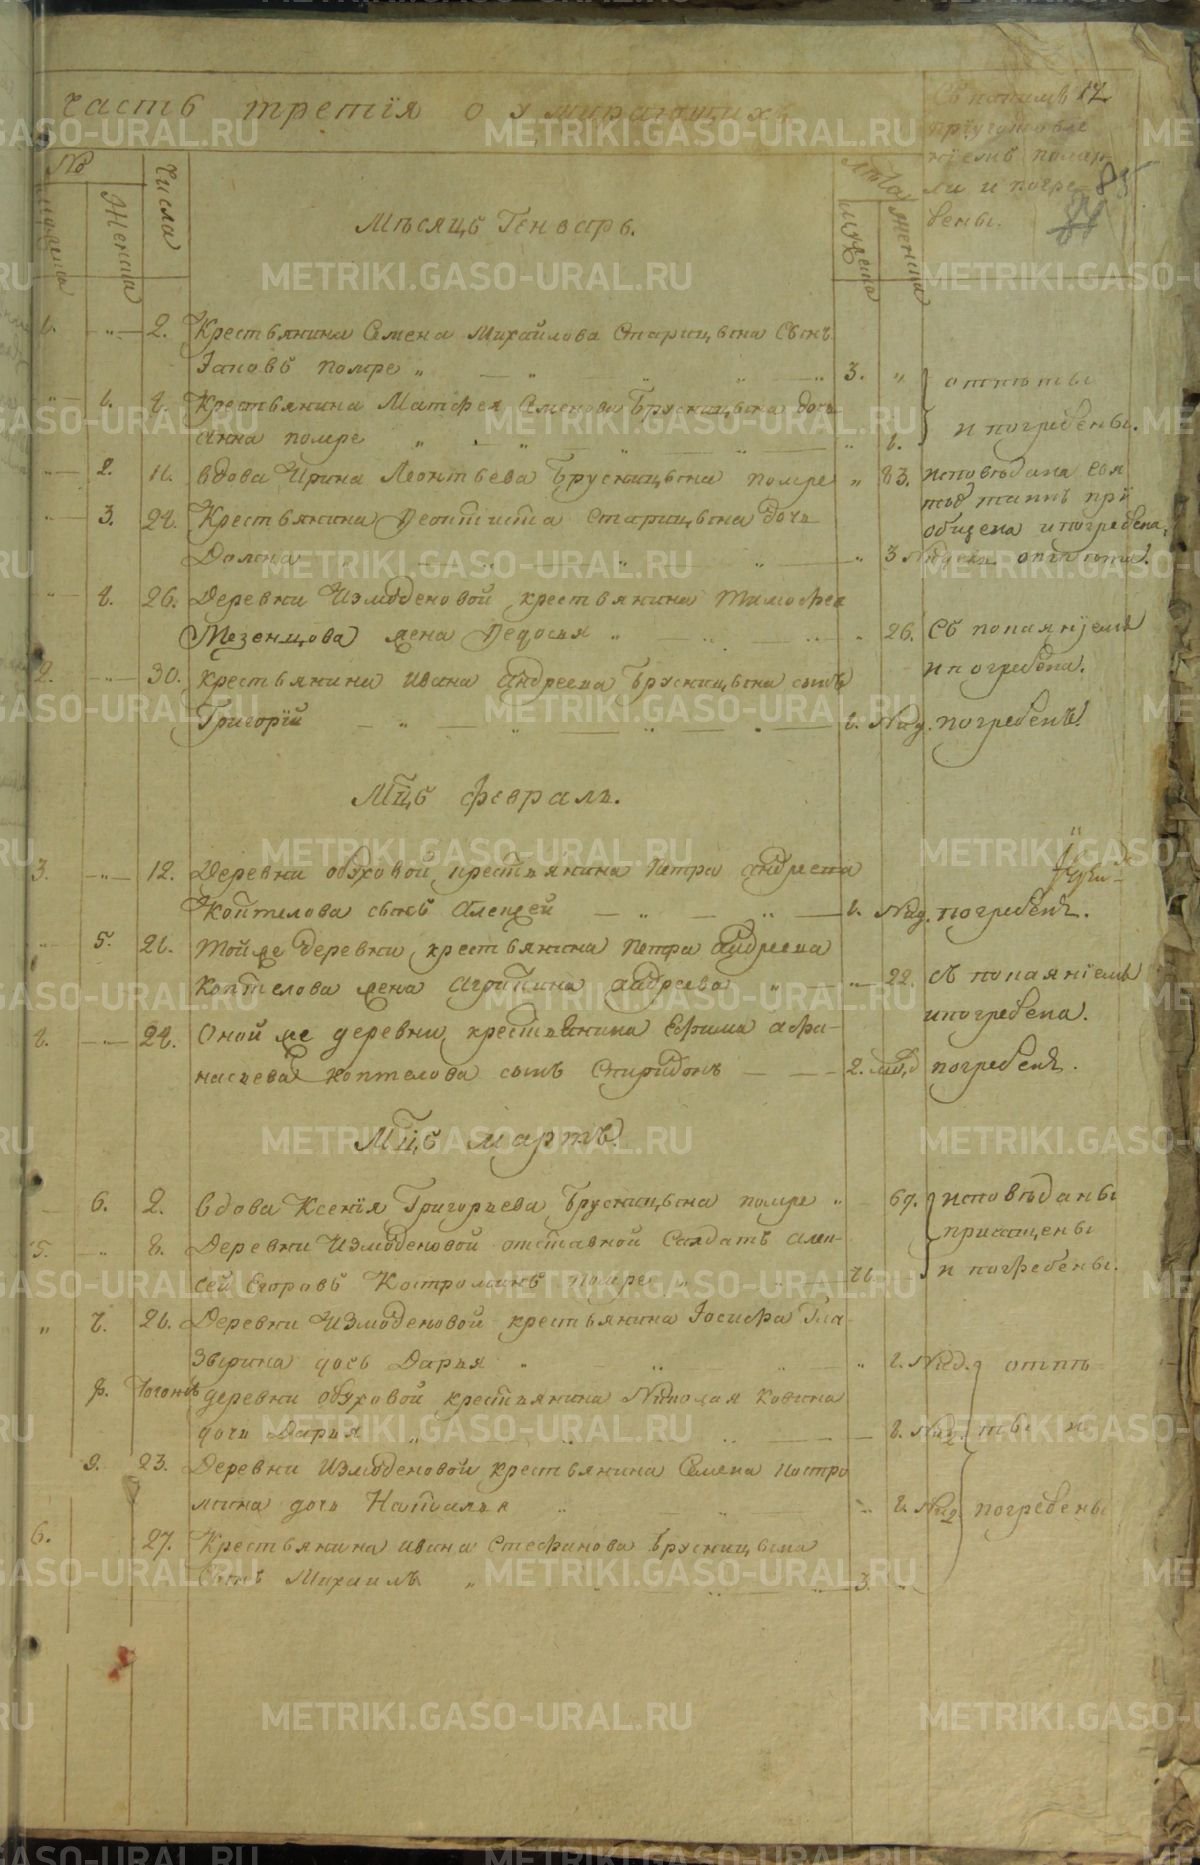 часть третія о умирающихъ
Съ какимъ
пріуготовле
ніемъ помер-
ли и погре-
бены.
17
85
№
мужеска
Женска
Числа
Лѣта
мужеска
женска
Мѣсяцъ Генварь.
1. 2. Крестьянина Семена Михайлова Старицына Сынъ
Іаковъ помре 3. отпѣты
1. 4. Крестьянина Матфея Семенова Брусницына дочь
Анна помре 1. и погребены.
2. 11. вдова Ирина Леонтьева Брусницына помре 83. исповѣдана свя
тыхъ таинъ прі
3. 24. Крестьянина Феоктиста Старицына дочь
общена и погребена.
Домна 3 Недели отпѣта.
4. 26. Деревни Измоденовой крестьянина Тимофея
Мезенцова жена Федосья 26. Съ покаяніемъ
и погребена.
2. 30. крестьянина Ивана Андреева Брусницына сынъ
Григорій 1. Нед. погребенъ.
Мцъ февраль.
3. 12. Деревни обуховой крестьянина Петра андреева
Коптелова сынъ Алексей 1. Нед. погребенъ.
5. 21. той же деревни крестьянина Петра Андреева
Коптелова жена Агрипина андреева 22. съ покаяніемъ
и погребена.
4. 24. Оной же деревни крестьянина Ефима афа-
насьева коптелова сынъ Спиридонъ 2. нед. погребенъ.
Мцъ мартъ.
6. 2. вдова Ксенія Григорьева Брусницына помре 67. исповѣданы
приащены
5. 8. Деревни Измоденовой отставной Салдатъ алек-
сей Егоровъ Костроминъ помре 71. и погребены.
7. 21. Деревни Измоденовой крестьянина Іосифа Гла
Зырина дочь Дарья 1. Нед. отпѣ-
8. Тогожъ деревни обуховой крестьянина Николая Ковина
дочь Дарья 1. Нед. ты и
9. 23. Деревни Измоденовой крестьянина Семена Костро
мина дочь Наталья 2. Нед. погребены
6. 27. Крестьянина ивана Стефанова Брусницына
Сынъ Михаилъ 3.
METRIKI.GASO-URAL.RU